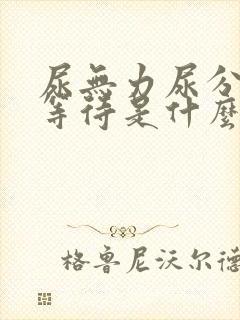 尿無力尿分
等待是什麼
格鲁尼沃尔德